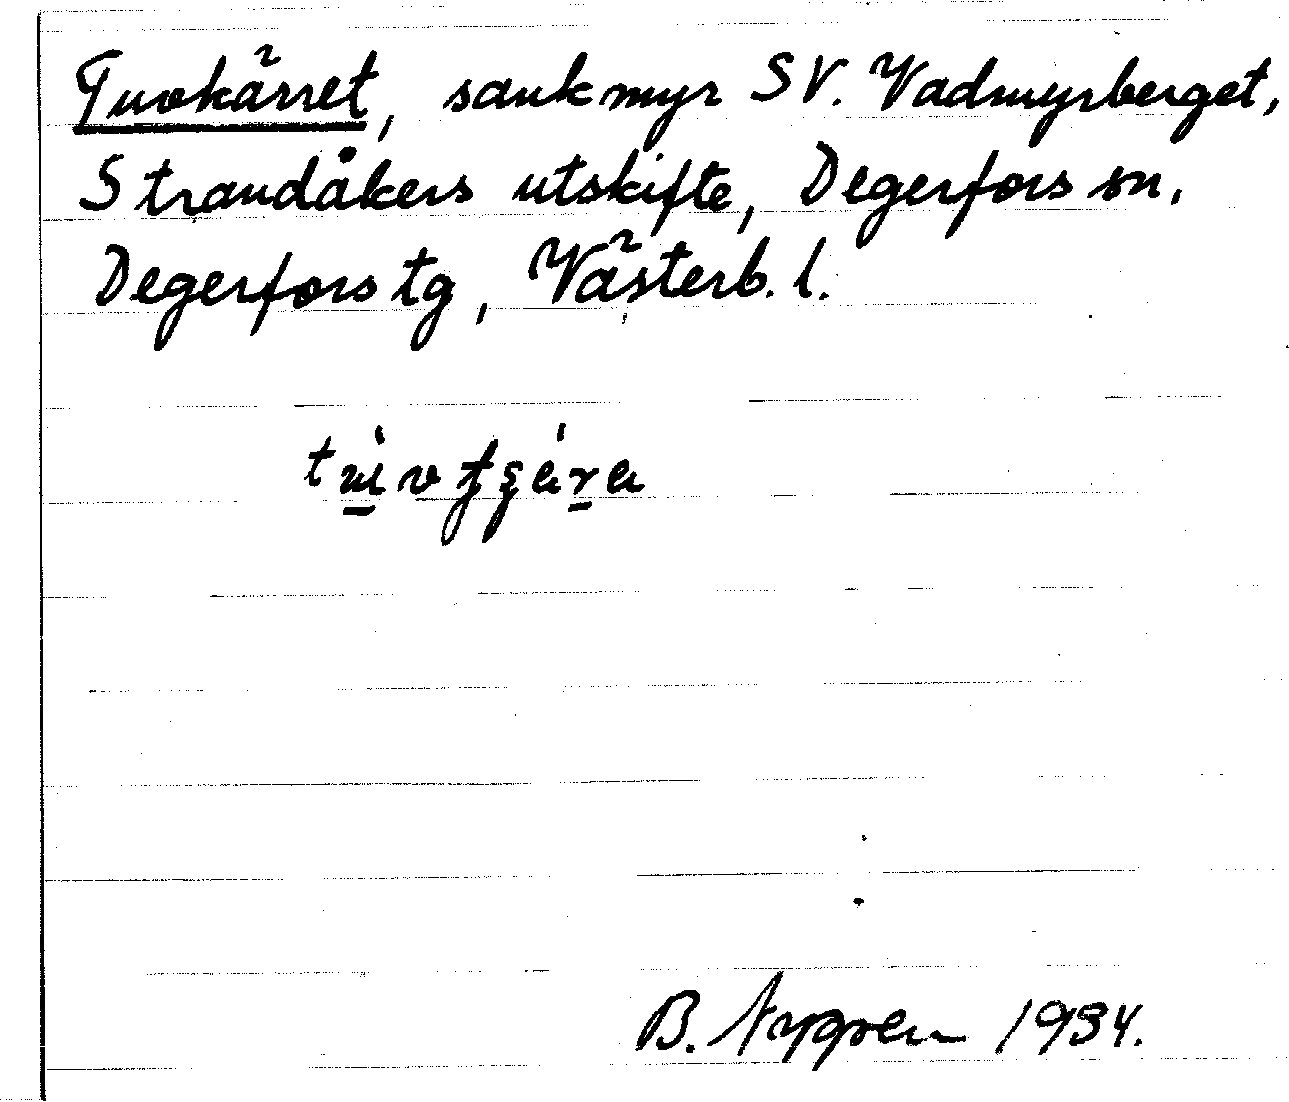 Tuvkärret, sank myr SV. Vadmyrberget,
Strandåkers utskifte, Degerfors sn,
Degerfors tg, Västerb. l.
B. Nygren 1934.